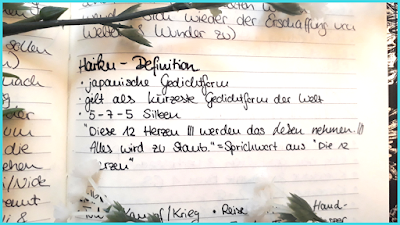 wieder der Erschaffung von
Welten & Wunder zu)
Haiku - Definition
• japanische Gedichtform
• gilt als kürzeste Gedichtform der Welt
• 5-7-5 Silben
"Diese 12 Herzen /// werden das Leben nehmen. ///
Alles wird zu Staub." = Sprichwort aus "Die 12
Herzen"
Kampf/Krieg • Reise Hand-
sollen
die
/Nick